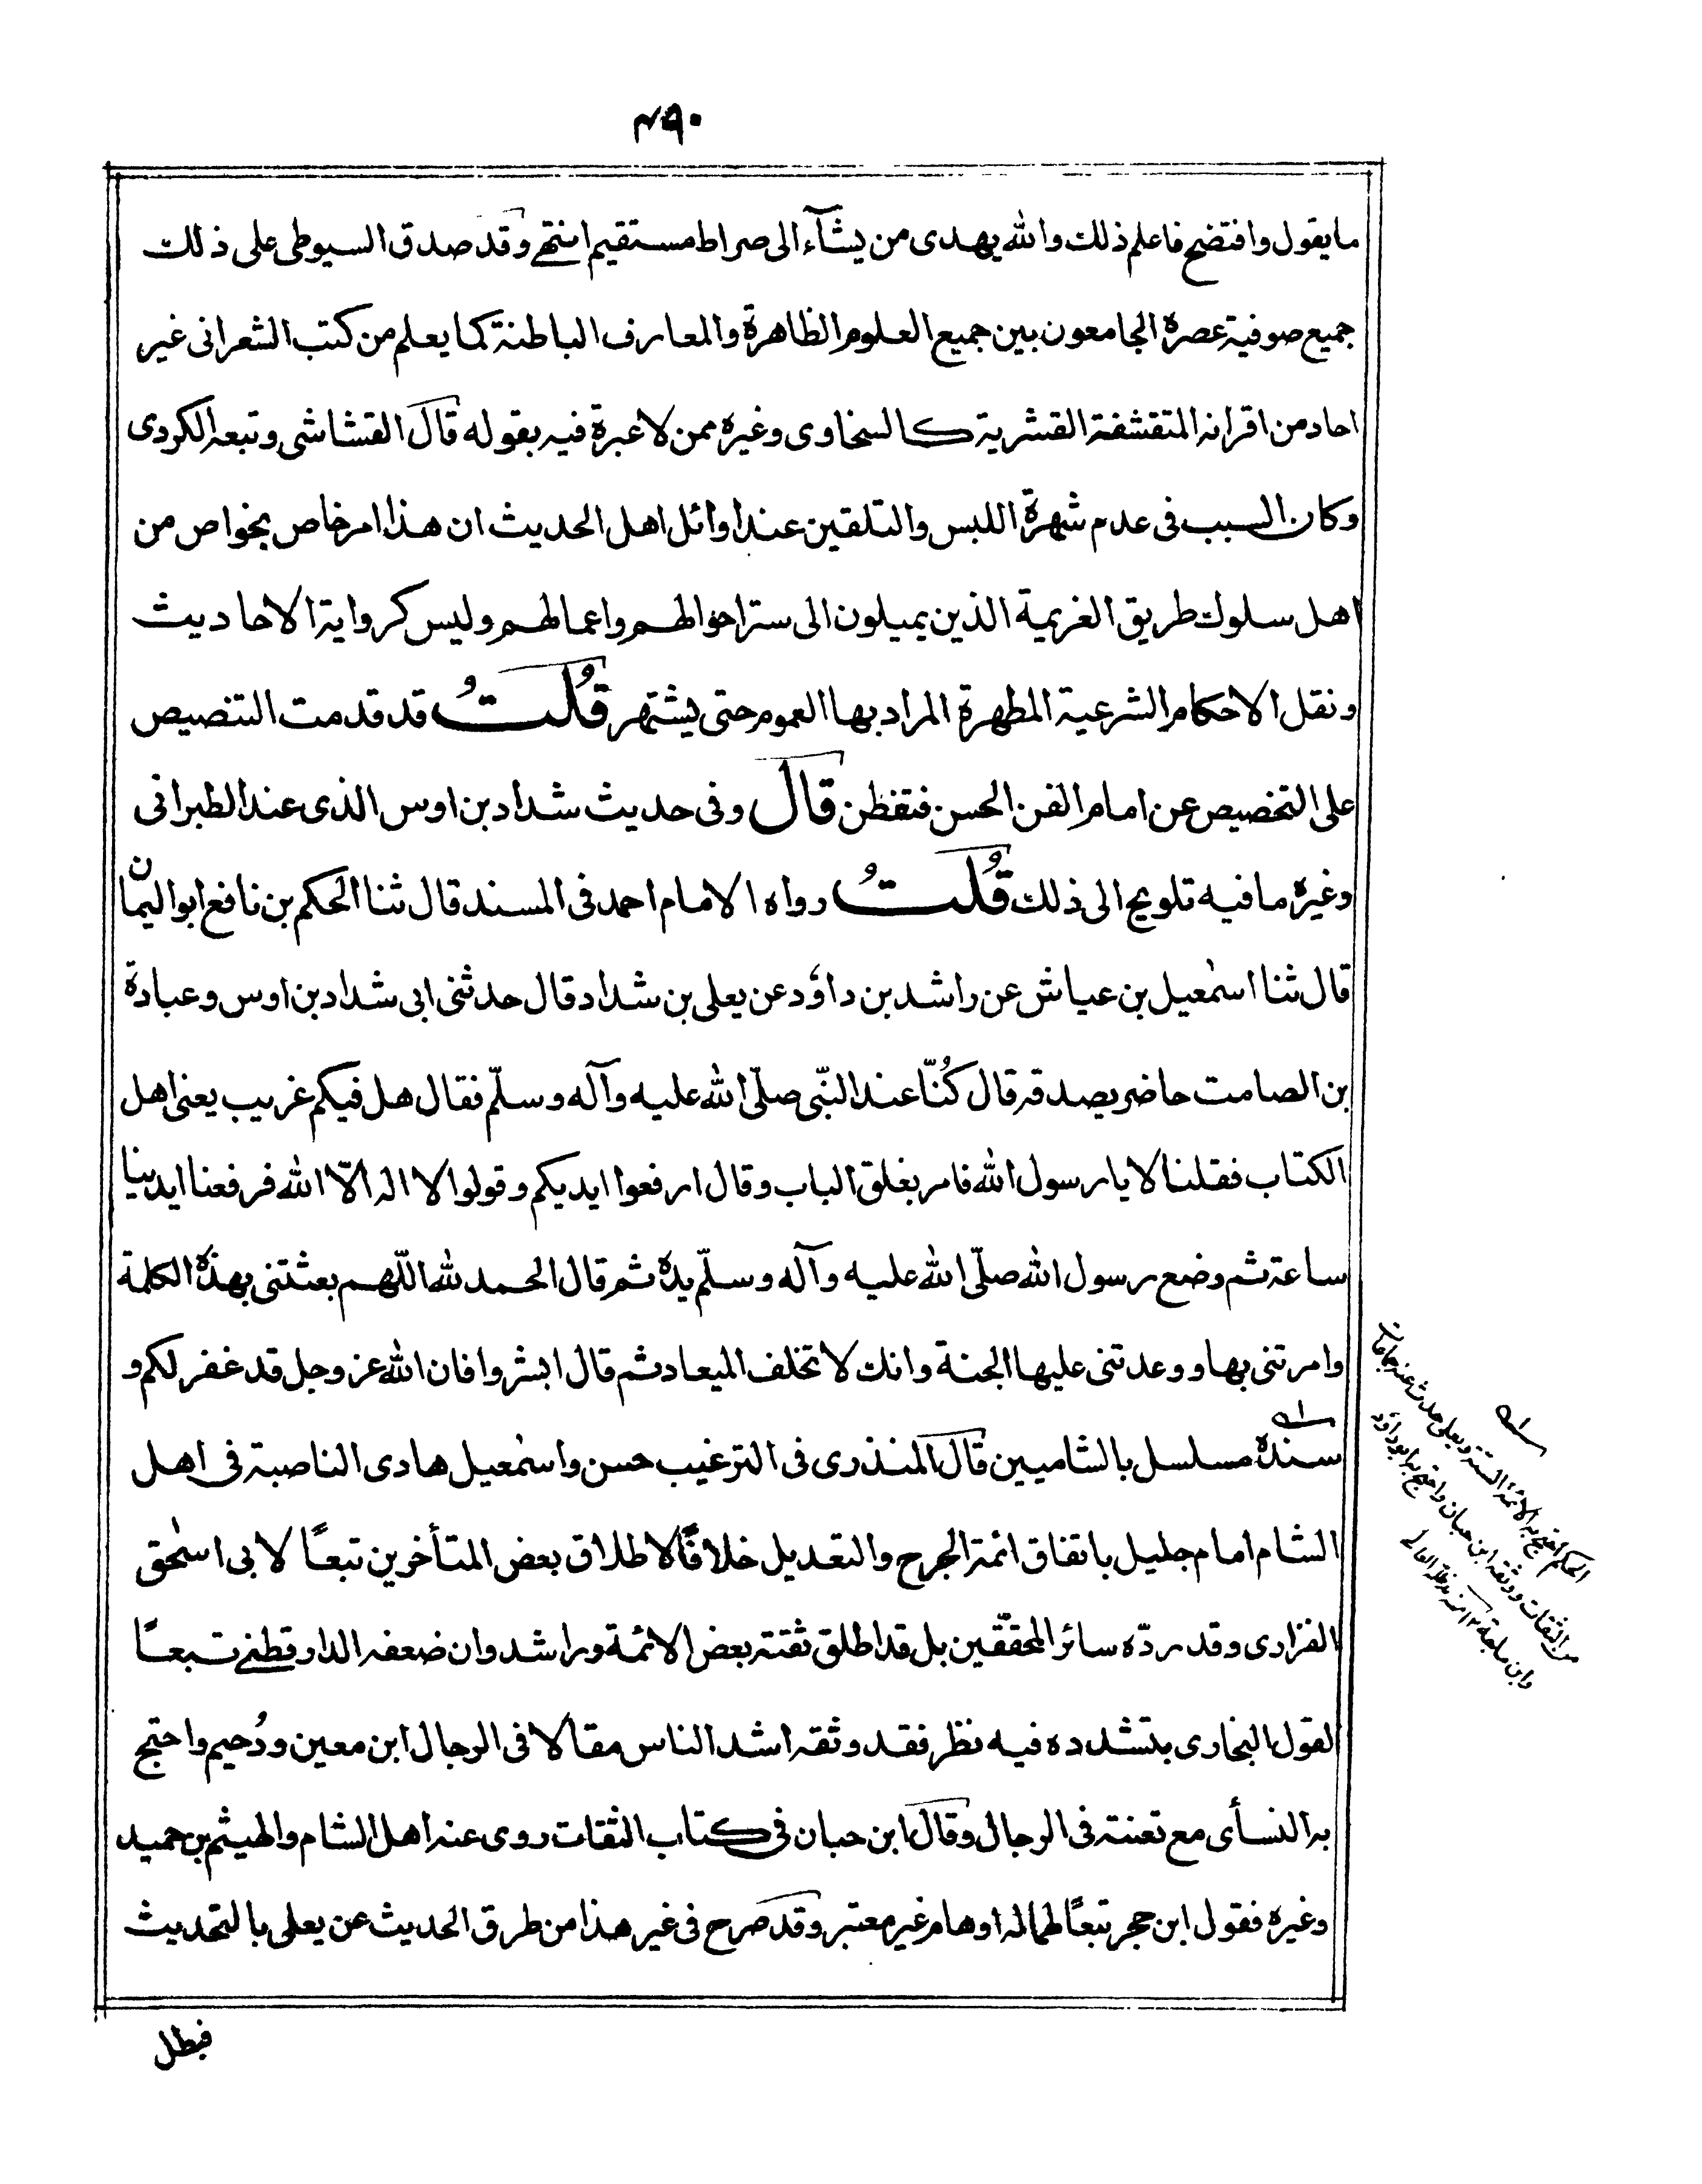 ۴۹۰
ما يقول وافتضح فاعلم ذلك والله يهدى من يشآء الى صراط مستقيم انتهى وقد صدق السيوطى على ذلك
جميع صوفية عصره الجامعون بين جميع العلوم الظاهرة والمعارف الباطنة كما يعلم من كتب الشعرانى غير
احاد من اقرانه المتقشفة القشرية كالسخاوى وغيره ممن لا عبرة فيه بقوله قال القشاشى وتبعه الكردى
وكان السبب فى عدم شهرة اللبس والتلقين عند اوائل اهل الحديث ان هذا امر خاص بخواص من
اهل سلوك طريق الغريمية الذين يميلون الى ستر احوالهم واعمالهم وليس كرواية الاحاديث
ونقل الاحكام الشرعية المطهرة المراد بها العموم حتى يشتهر قُلتُ قد قدمت التنصيص
على التخصيص عن امام الفن الحسن فتفطن قال وفى حديث شداد بن اوس الذى عند الطبرانى
وغيره ما فيه تلويح الى ذلك قُلتُ رواه الامام احمد فى المسند قال ثنا الحكم بن نافع ابو اليمان
قال ثنا اسمٰعيل بن عياش عن راشد بن داؤد عن يعلى بن شداد قال حدثنى ابى شداد بن اوس وعبادة
بن الصامت حاضر يصدقه قال كُنّا عند النّبى صلّى الله عليه وآله وسلّم فقال هل فيكم غريب يعنى اهل
الكتاب فقلنا لا يا رسول الله فامر بغلق الباب وقال ارفعوا ايديكم وقولوا لا اله الّا الله فرفعنا ايدينا
ساعة ثم وضع رسول الله صلّى الله عليه وآله وسلّم يده ثم قال الحمد لله اللّهم بعثتنى بهذه الكلمة
وامرتنى بها ووعدتنى عليها الجنة وانك لا تخلف الميعاد ثم قال ابشروا فان الله عز وجل قد غفر لكم و
سنده مسلسل بالشاميين قال المنذرى فى الترغيب حسن واسمٰعيل هادى الناصبة فى اهل
الشام امام جليل باتفاق ائمة الجرح والتعديل خلافًا لاطلاق بعض المتأخرين تبعًا لابى اسحٰق
الفزارى وقد ردّه سائر المحقّقين بل قد اطلق ثقته بعض الائمة وراشد وان ضعفه الداوقطنى تبعًا
لقول البخارى بتشدده فيه نظر فقد وثقه اشد الناس مقالا فى الرجال ابن معين ودُحيم واحتج
به النسأى مع تعنته فى الرجال وقال ابن حبان فى كتاب الثقات روى عنه اهل الشام والهيثم بن حميد
وغيره فقول ابن حجر تبعًا لهما له اوهام غير معتبر وقد صرح فى غير هذا من طرق الحديث عن يعلى بالتحديث
الحكم احتج به الائمة الستة ويعلى حدث عنه جماعة
من الثقات ووثقه ابن حبان واحتج به ابو داؤد
وابن ماجة ۱۲ منه
فبطل